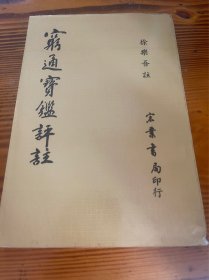 徐樂吾註
窮通寶鑑評註
宏業書局印行